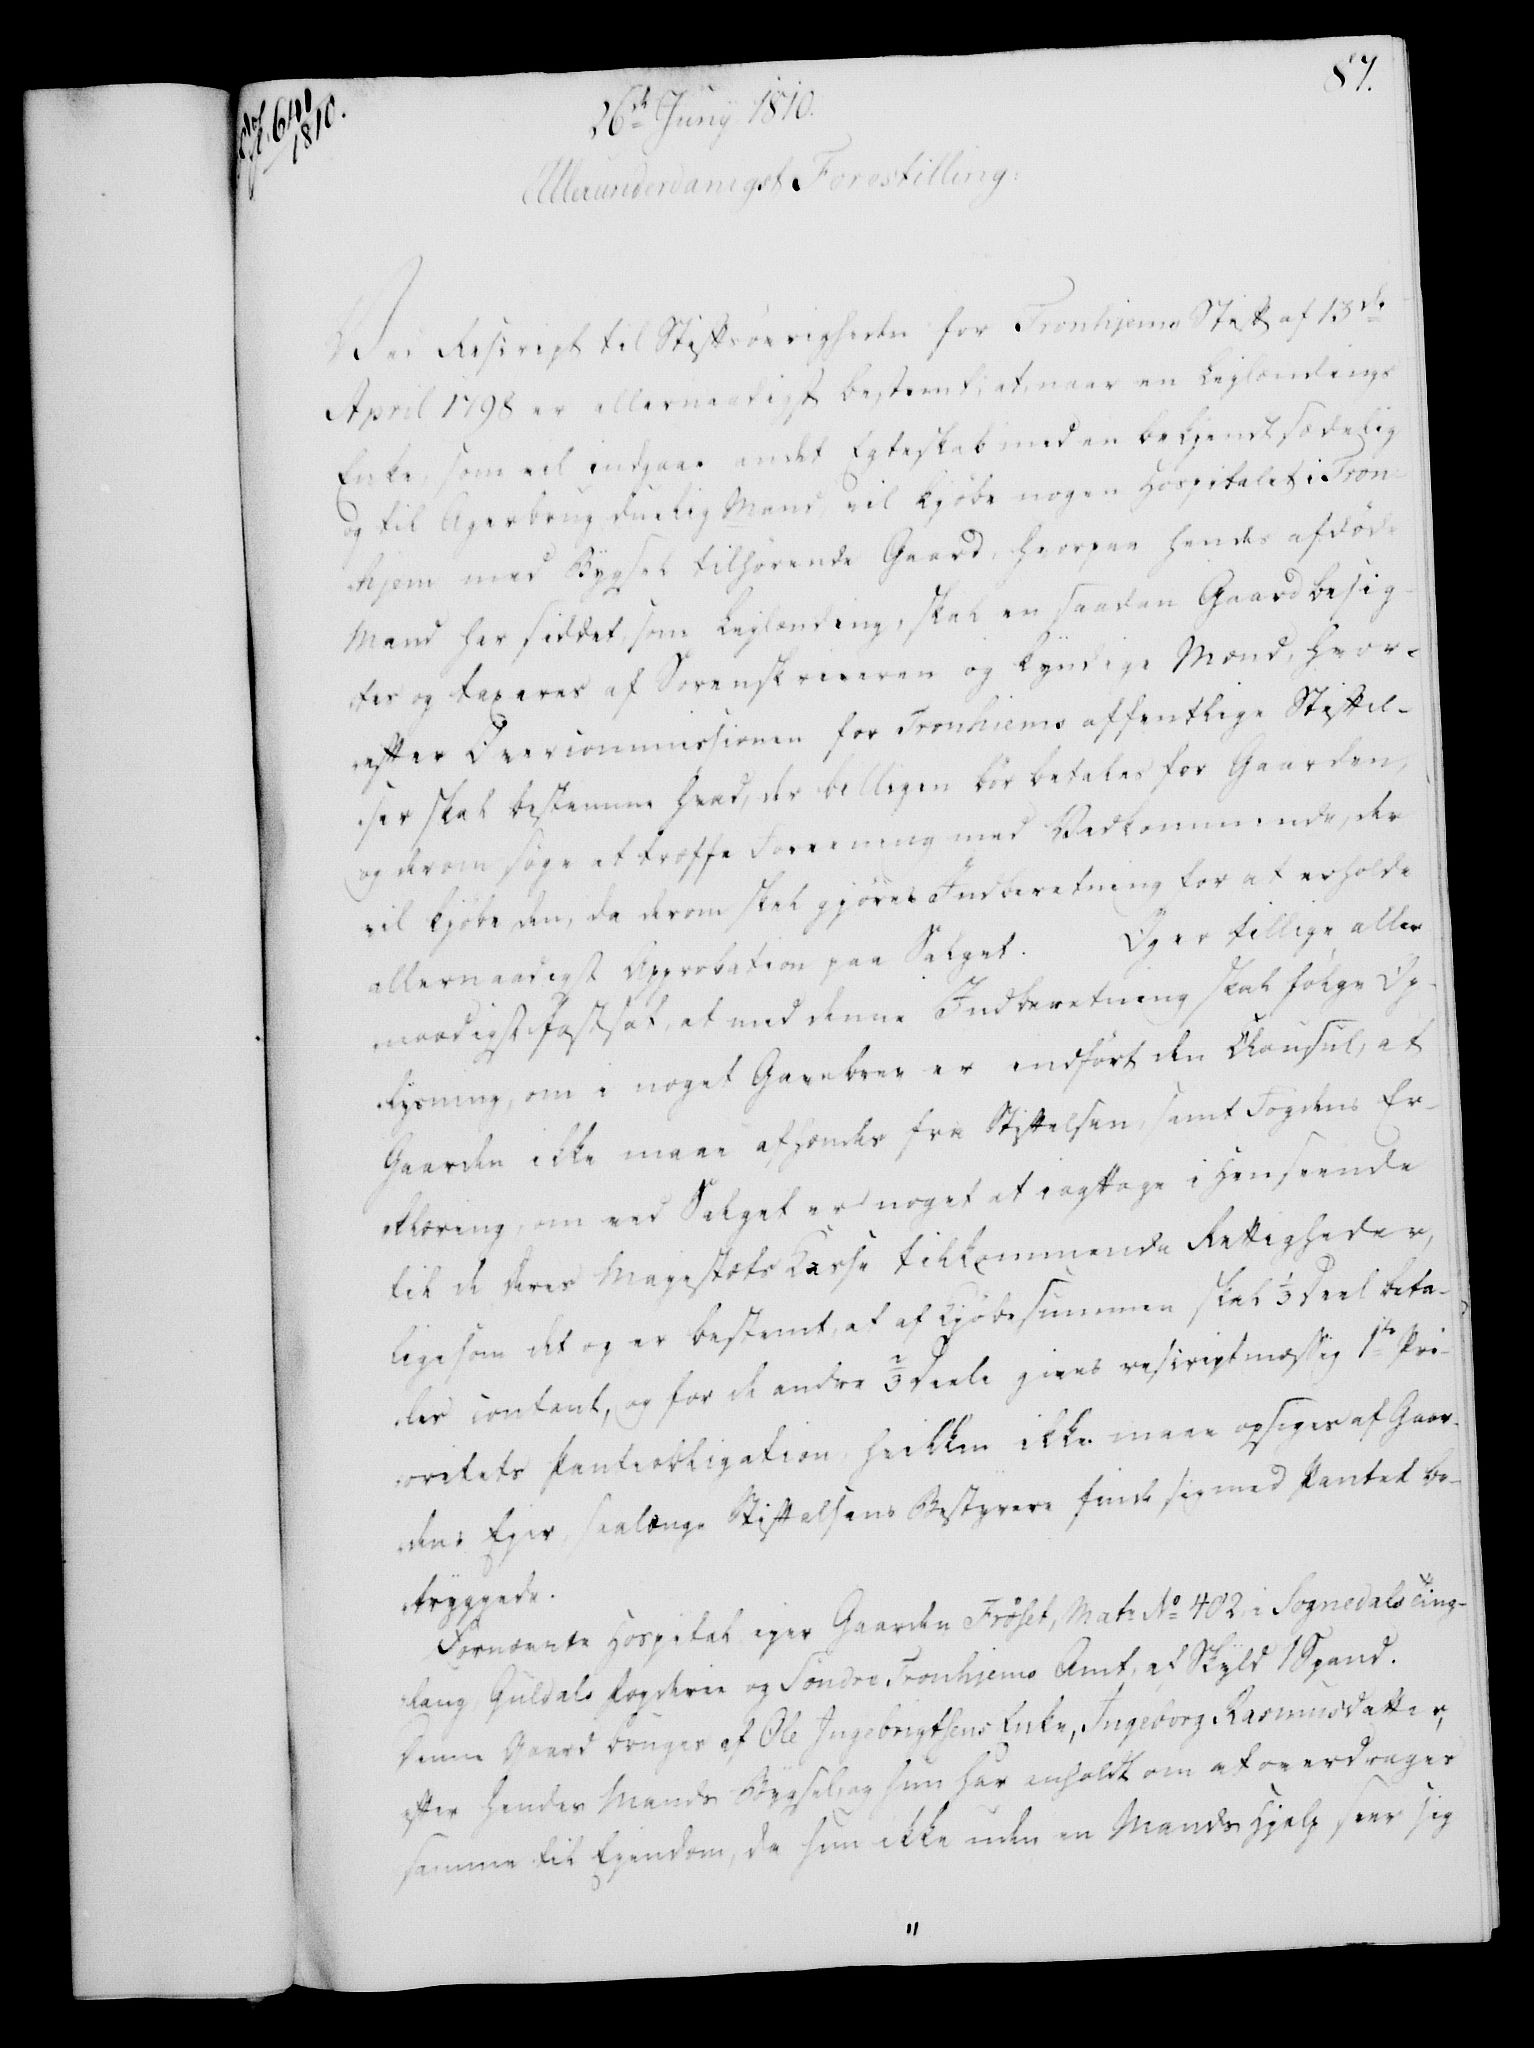 87.
26de Juny 1810.
641
1810.
Allerunderdanigst Forestilling:
Ved Rescript til Stiftsøvrigheden for Tronhjems Stift af 13de
April 1798 er allernaadigst bestemt, at, naar en Leylændings
Enke, som vil indgaae andet Egteskab med en bekjendt sædelig
og til Agerbrug duelig Mand, vil kjøbe nogen Hospitalet i Tron-
hjem med Bygsel tilhørende Gaard, hvorpaa hendes afdøde
Mand har siddet, som Leylænding, skal en saadan Gaard besig-
tes og taxeres af Sorenskriveren og kyndige Mænd, hvor-
efter Overcommissionen for Tronhiems offentlige Stiftel-
ser skal bestemme hvad, der billigen bør betales for Gaarden,
og derom søge at træffe Foreening med Vedkommende, der
vil kjøbe den, da derom skal gjøres Indberetning for at erholde
allernaadigst Approbation paa Salget. Og er tillige aller-
naadigst fastsat, at med denne Indberetning skal følge Op-
lysning, om i noget Gavebrev er indført den Clausul, at
Gaarden ikke maae afhændes fra Stiftelsen, samt Fogdens Er-
klæring, om ved Salget er noget at iagttage i Henseende
til de Deres Majestæts Kasse tilkommende Rettigheder,
ligesom det og er bestemt, at af Kjøbesummen skal 1/3 Deel beta-
les contant, og for de andre 2/3 Deele gives rescriptmæssig 1ste Pri-
oritets Panteobligation, hvilken ikke maae opsiges af Gaar-
dens Ejer, saalænge Stiftelsens Bestyrere finde sig med Pantet be-
tryggede.
Fornævnte Hospital ejer Gaarden Frøset, Matr. No 402, i Sognedals Ting-
laug, Guldals Fogderie og Søndre Tronhjems Amt, af Skyld 1 Spand.
Denne Gaard bruges af Ole Ingebrigtsens Enke, Ingeborg Rasmusdatter,
efter hendes Mands Bygsel, og hun har anholdt om at overdrages
samme til Ejendom, da hun ikke uden en Mands Hjelp seer sig
"